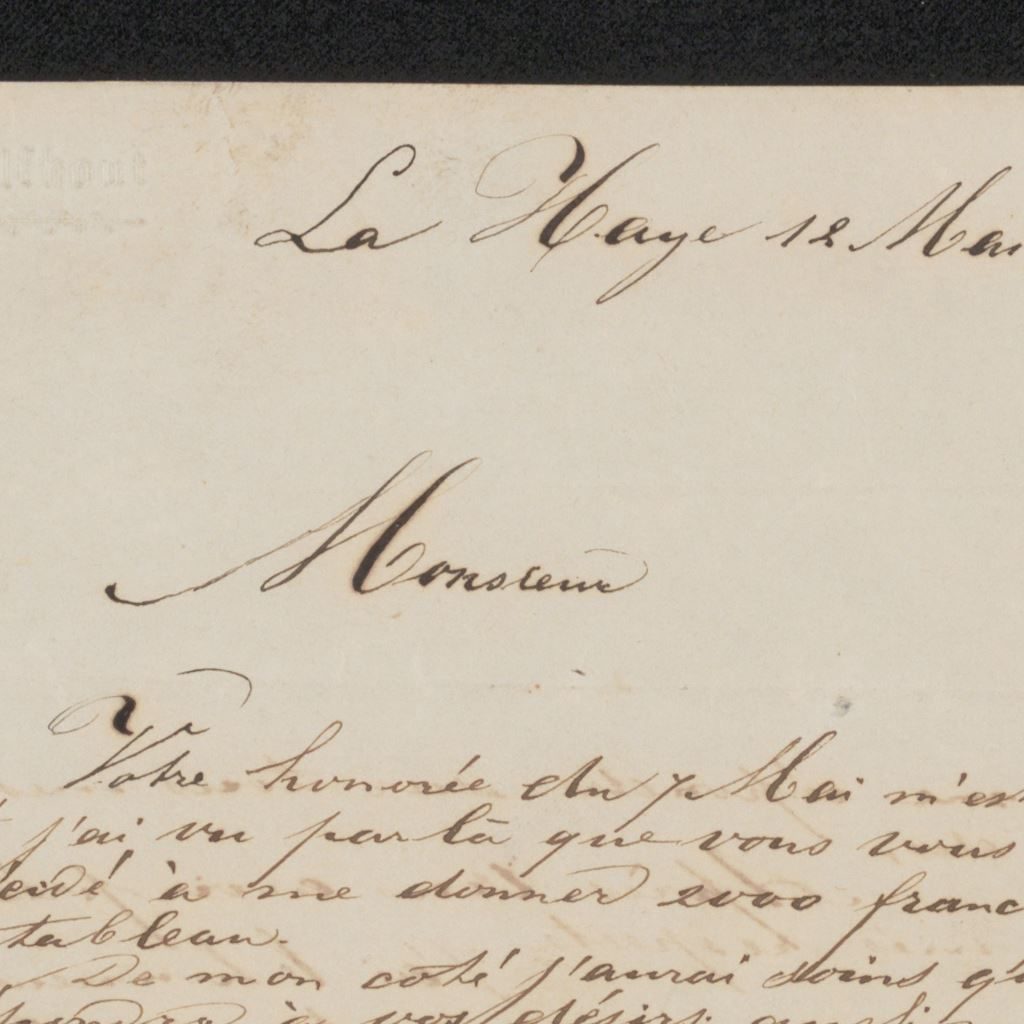 La Haye 12 Mai
Monsieur
Votre honorée du 7 Mai m'est
j'ai vu par là que vous vous
cidé à me donner 2000 franc
tableau.
De mon coté j'aurai soins q'
à vos désirs